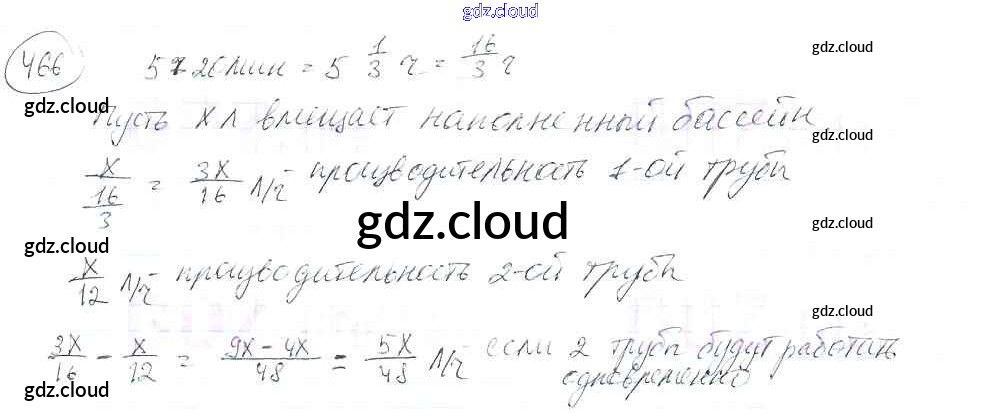 gdz.cloud
gdz.cloud
466 5 ч 20 мин = 5 1/3 ч = 16/3 ч
gdz.cloud
Пусть x л вмещает наполненный бассейн
gdz.cloud
x/(16/3) = 3x/16 л/ч производительность 1-ой трубы
gdz.cloud
gdz.cloud
gdz.cloud
x/12 л/ч производительность 2-ой трубы
gdz.cloud
3x/16 - x/12 = (9x - 4x)/48 = 5x/48 л/ч если 2 трубы будут работать
одновременно
gdz.cloud
gdz.cloud